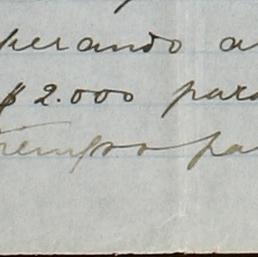 perando a
$2.000 para
tiempo pa